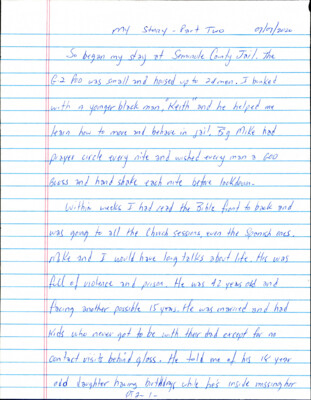 My Story - Part Two 07/07/2020
So began my stay at Seminole County Jail. The
G-2 Pod was small and housed up to 24 men. I bunked
with a younger black man, "Keith" and he helped me
learn how to move and behave in jail. Big Mike had
prayer circle every nite and wished every man a God
Bless and hand shake each nite before lockdown.
Within weeks I had read the Bible front to back and
was going to all the Church sessions, even the Spanish ones.
Mike and I would have long talks about life. His was
full of violence and prison. He was 42 years old and
facing another possible 15 years. He was married and had
kids who never got to be with their dad except for no
contact visits behind glass. He told me of his 15 year
old daughter having birthdays while he's inside missing her
Pt 2 -1-